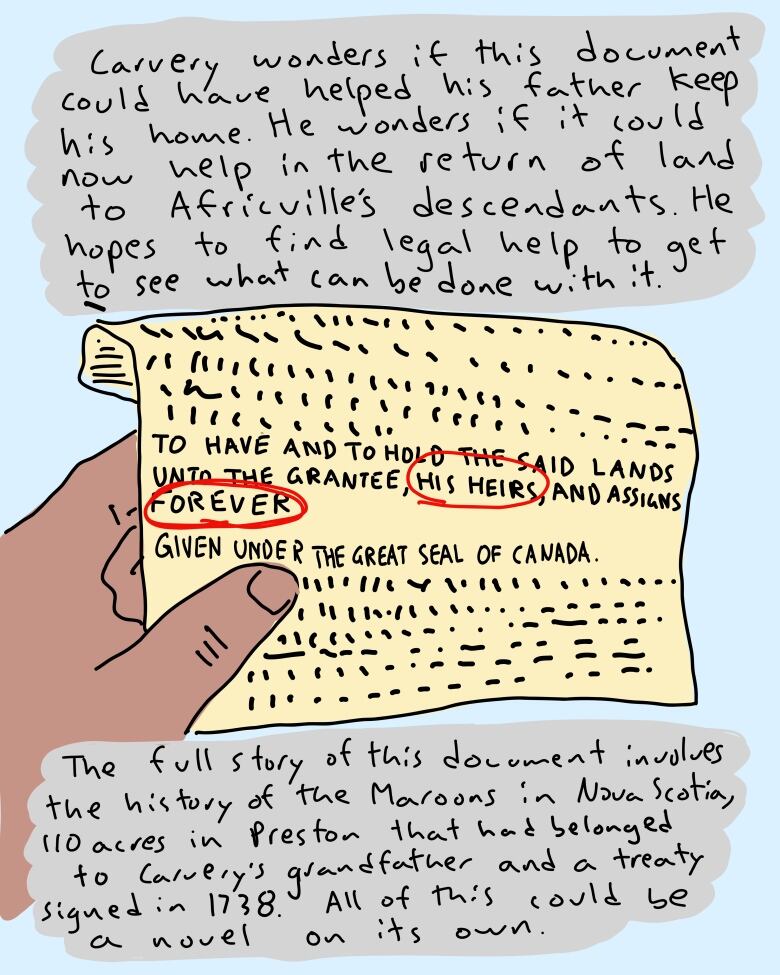 Carvery wonders if this document
could have helped his father keep
his home. He wonders if it could
now help in the return of land
to Africville's descendants. He
hopes to find legal help to get
to see what can be done with it.
TO HAVE AND TO HOLD THE SAID LANDS
UNTO THE GRANTEE, HIS HEIRS, AND ASSIGNS
FOREVER
GIVEN UNDER THE GREAT SEAL OF CANADA.
The full story of this document involves
the history of the Maroons in Nova Scotia,
110 acres in Preston that had belonged
to Carvery's grandfather and a treaty
signed in 1738. All of this could be
a novel on its own.